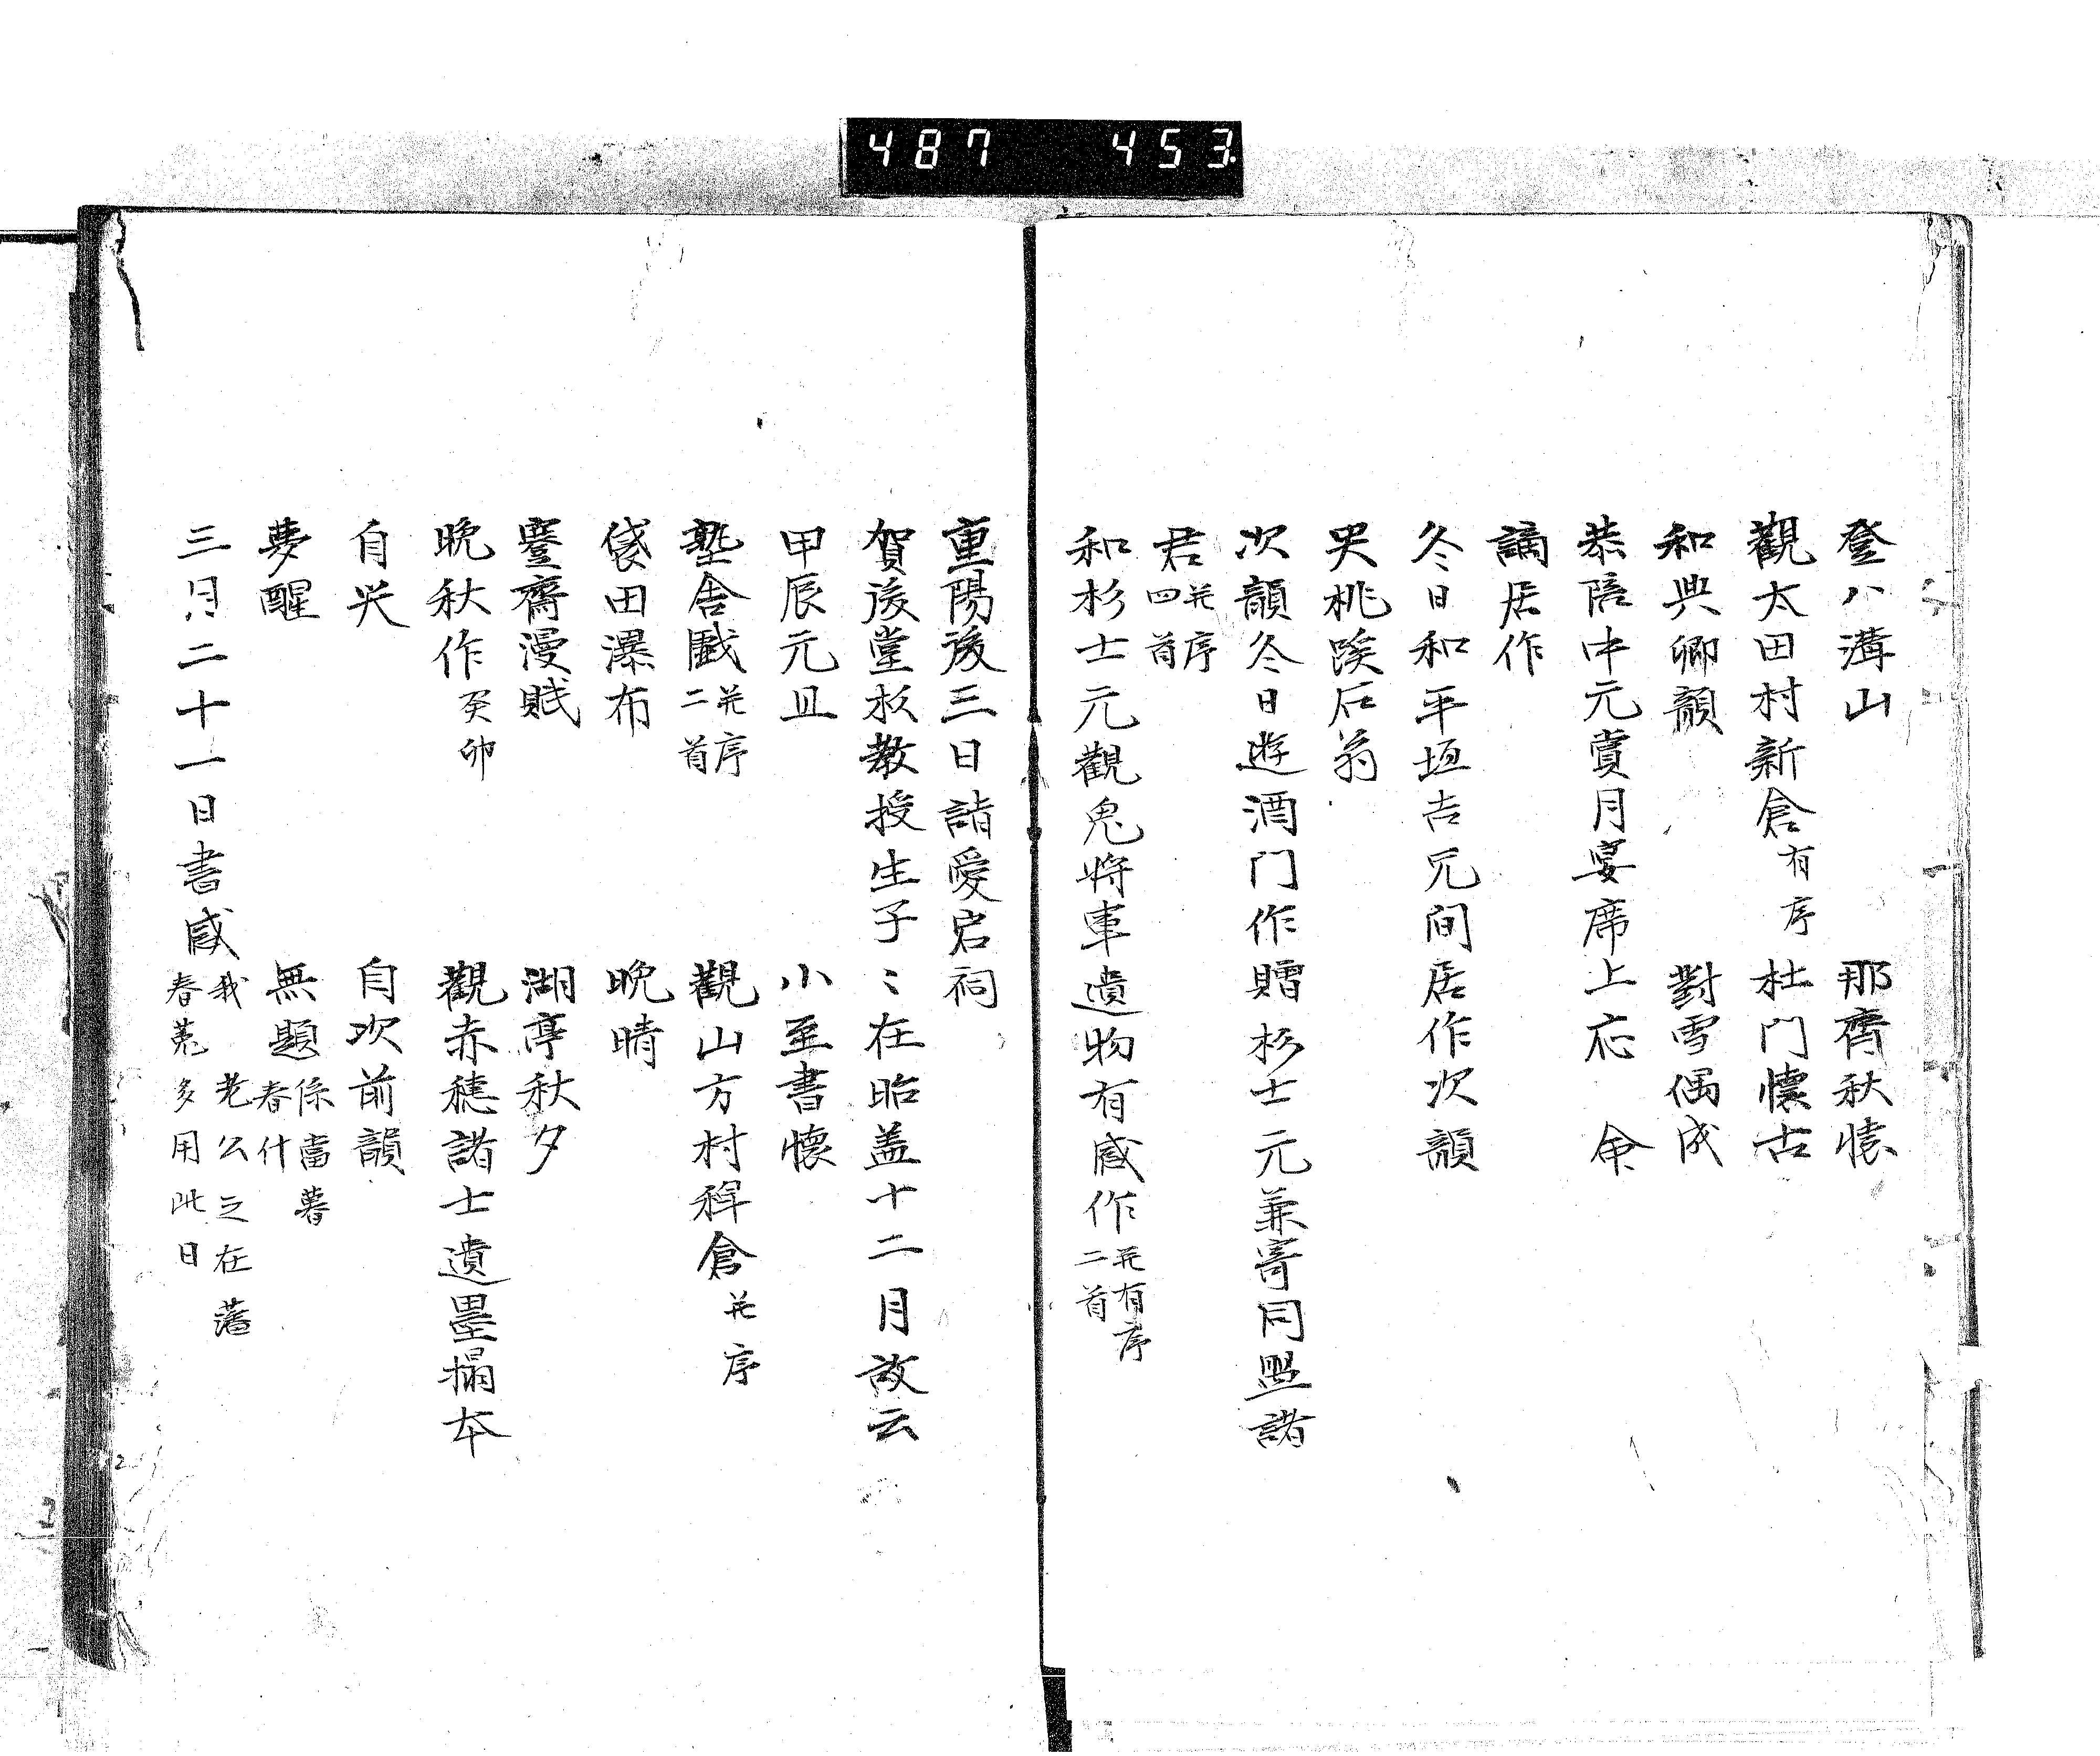 487 453
登八溝山 那齊秋懷
觀太田村新倉有序 杜門懷古
和與卿韻 對雪偶成
恭陪中元賞月宴席上応 命
謫居作
冬日和平垣吉元间居作次韻
哭桃蹊石翁
次韻冬日遊酒门作贈杉士元兼寄同盟諸
君并序四首
和杉士元觀鬼將軍遺物有感作并有序二首
重陽後三日詣愛宕祠
賀後堂杉教授生子〻在昨盖十二月故云
甲辰元旦 小至書懷
塾舍戲并序二首 觀山方村稗倉并序
袋田瀑布 晚晴
蹇齋漫賦 湖亭秋夕
晚秋作癸卯 觀赤穗諸士遺墨搨本
自咲 自次前韻
夢醒 無題係當暮春什
三月二十一日書感我 老公之在藩春蒐多用此日